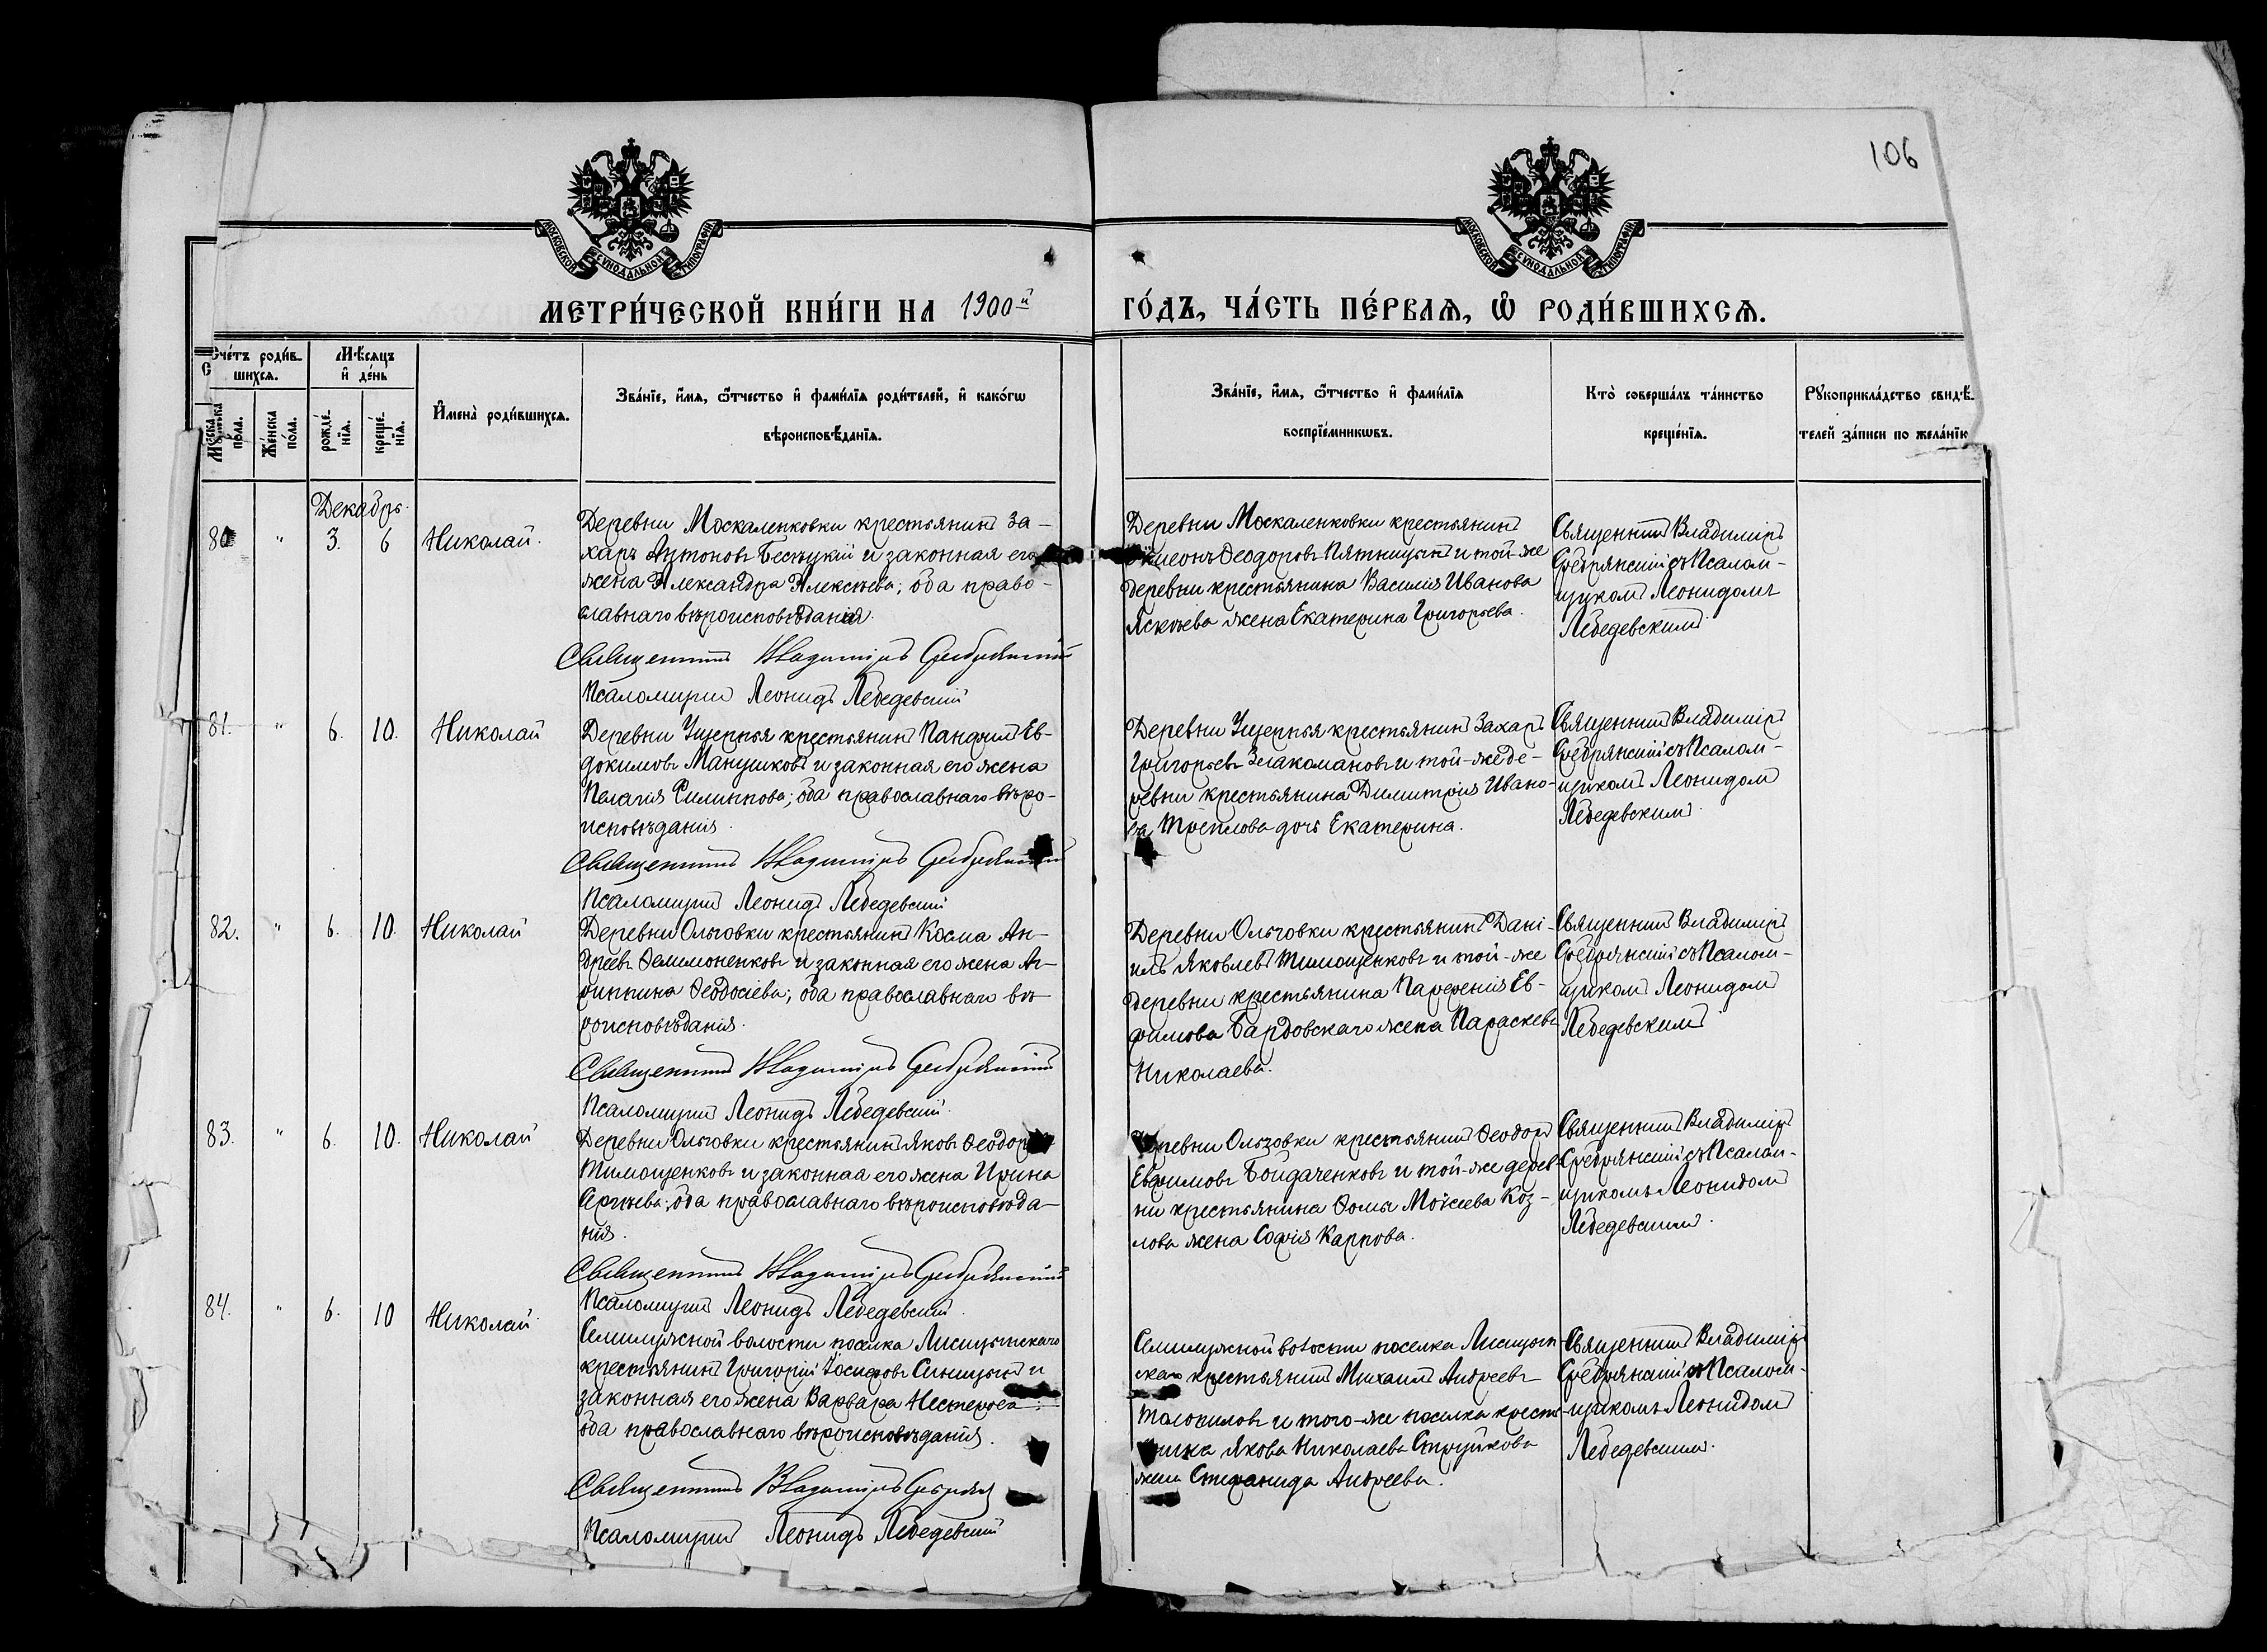 106
МОСКОВСКОЙ СѴНОДАЛЬНОЙ ТИПОГРАФІИ
МОСКОВСКОЙ СѴНОДАЛЬНОЙ ТИПОГРАФІИ
МЕТРИ́ЧЕСКОЙ КНИ́ГИ НА 1900й
ГО́ДЪ, ЧА́СТЬ ПЕ́РВАѦ, Ѡ РОДИ́ВШИХСѦ.
Сче́тъ роди́в-
шихсѧ.
Мѣ́сѧцъ
и҆ де́нь
Мꙋ́жеска
по́ла.
Же́нска
по́ла.
рожде́-
нїѧ.
креще́-
нїѧ.
И҆мена̀ роди́вшихсѧ.
Зва́нїе, и҆́мѧ, ѻ҆́тчество и҆ фами́лїѧ роди́телей, и҆ како́гѡ
вѣроисповѣ́данїѧ.
Зва́нїе, и҆́мѧ, ѻ҆́тчество и҆ фами́лїѧ
воспрїе́мникѡвъ.
Кто̀ соверша́лъ та́инство
креще́нїѧ.
Рꙋкоприкла́дство свидѣ́-
телей за́писи по жела́нїю
Декабрь.
80 " 3. 6 Николай.
Деревни Москаленковки крестьянинъ За-
харъ Антоновъ Бесѣцкій и законная его
жена Александра Алексѣева; оба право-
славнаго вѣроисповѣданія.
Священникъ Владиміръ Сребрянскій
Псаломщикъ Леонидъ Лебедевскій
Деревни Москаленковки крестьянинъ
Симеонъ Ѳеодоровъ Пятницынъ и той-же
деревни крестьянина Василія Иванова
жена Екатерина Григорьева.
Священникъ Владиміръ
Сребрянскій съ Псалом-
щикомъ Леонидомъ
Лебедевскимъ.
81. " 6. 10. Николай
Деревни Ущерпья крестьянинъ Панфилъ Ев-
докимовъ Манушковъ и законная его жена
Пелагія Филиппова; оба православнаго вѣро-
исповѣданія.
Священникъ Владиміръ Сребрянскій
Псаломщикъ Леонидъ Лебедевскій
Деревни Ущерпья крестьянинъ Захаръ
Григорьевъ Злакомановъ и той-же де-
ревни крестьянина Димитрія Ивано-
ва дочь Екатерина.
Священникъ Владиміръ
Сребрянскій съ Псалом-
щикомъ Леонидомъ
Лебедевскимъ.
82. " 6. 10. Николай
Деревни Ольговки крестьянинъ Косма Ан-
дреевъ Ѳилимоненковъ и законная его жена Аг-
риппина Ѳеодосіева; оба православнаго вѣ-
роисповѣданія.
Священникъ Владиміръ Сребрянскій
Псаломщикъ Леонидъ Лебедевскій.
Деревни Ольговки крестьянинъ Дані-
илъ Яковлевъ Тимощенковъ и той-же
деревни крестьянина Парѳенія Ев-
фимова Бардовскаго жена Параскева
Николаева.
Священникъ Владиміръ
Сребрянскій съ Псалом-
щикомъ Леонидомъ
Лебедевскимъ
83. " 6. 10. Николай
Деревни Ольговки крестьянинъ Яковъ Ѳеодоровъ
Тимощенковъ и законная его жена Ирина
Сергѣева; оба православнаго вѣроисповѣда-
нія.
Священникъ Владиміръ Сребрянскій
Псаломщикъ Леонидъ Лебедевскій.
Деревни Ольговки крестьянинъ Ѳеодоръ
Евфимовъ Бойдаченковъ и той-же дерев-
ни крестьянина Ѳомы Моѵсеева Коз-
лова жена Софія Карпова.
Священникъ Владиміръ
Сребрянскій съ Псалом-
щикомъ Леонидомъ
Лебедевскимъ.
84. " 6. 10 Николай.
Семилужной волости поселка
крестьянинъ Григорій Іосифовъ Синицынъ и
законная его жена Варвара Нестерова;
оба православнаго вѣроисповѣданія.
Священникъ Владиміръ
Псаломщикъ Леонидъ Лебедевскій
Семилужной волости поселка
крестьянинъ Михаилъ Андреевъ
Толопиловъ и того-же поселка кресть-
янина Якова Николаева Струйкова
жена Стефанида Андреева.
Священникъ Владиміръ
Сребрянскій съ Псалом-
щикомъ Леонидомъ
Лебедевскимъ.